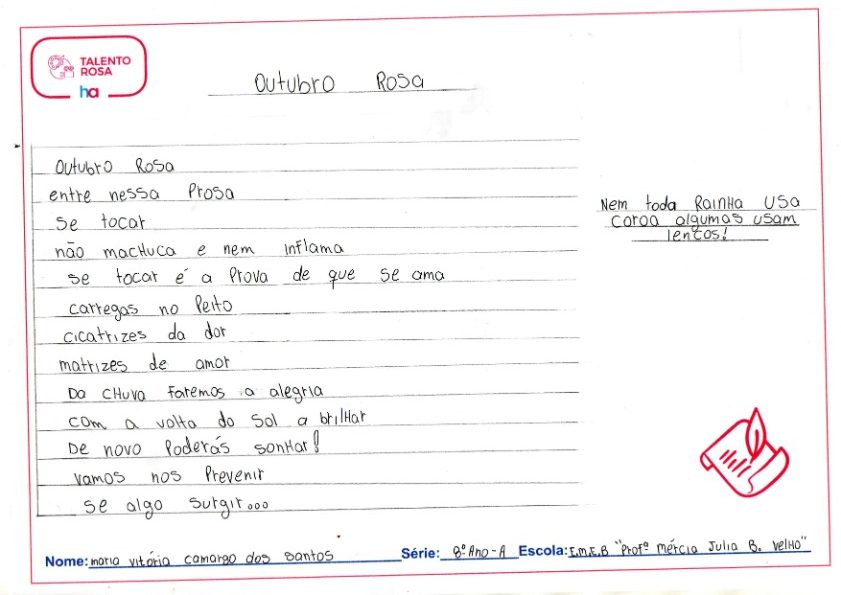 TALENTO
ROSA
ha
Outubro Rosa
Outubro Rosa
entre nessa Prosa
Se tocar
não machuca e nem inflama
se tocar é a Prova de que se ama
carregas no Peito
cicatrizes da dor
matrizes de amor
Da chuva faremos a alegria
com a volta do Sol a brilhar
De novo Poderás sonhar!
vamos nos Prevenir
se algo surgir...
Nem toda Rainha usa
coroa algumas usam
lenços!
Nome: maria vitória camargo dos santos Série: 8º Ano-A Escola: E.M.E.B "Profª mércia Julia B. velho"